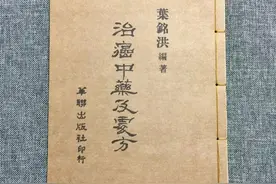 葉銘洪 編著
治癌中藥及處方
華聯出版社印行